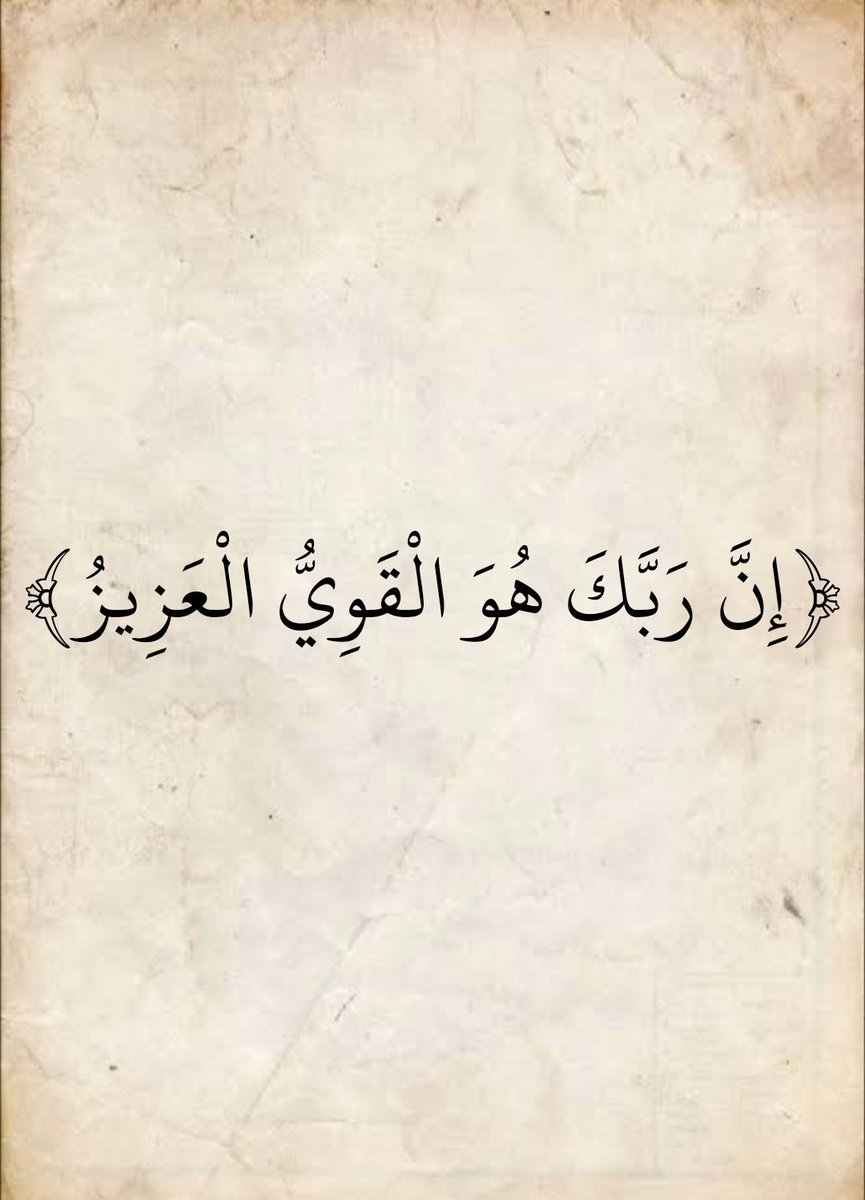 ﴿إِنَّ رَبَّكَ هُوَ الْقَوِيُّ الْعَزِيزُ﴾